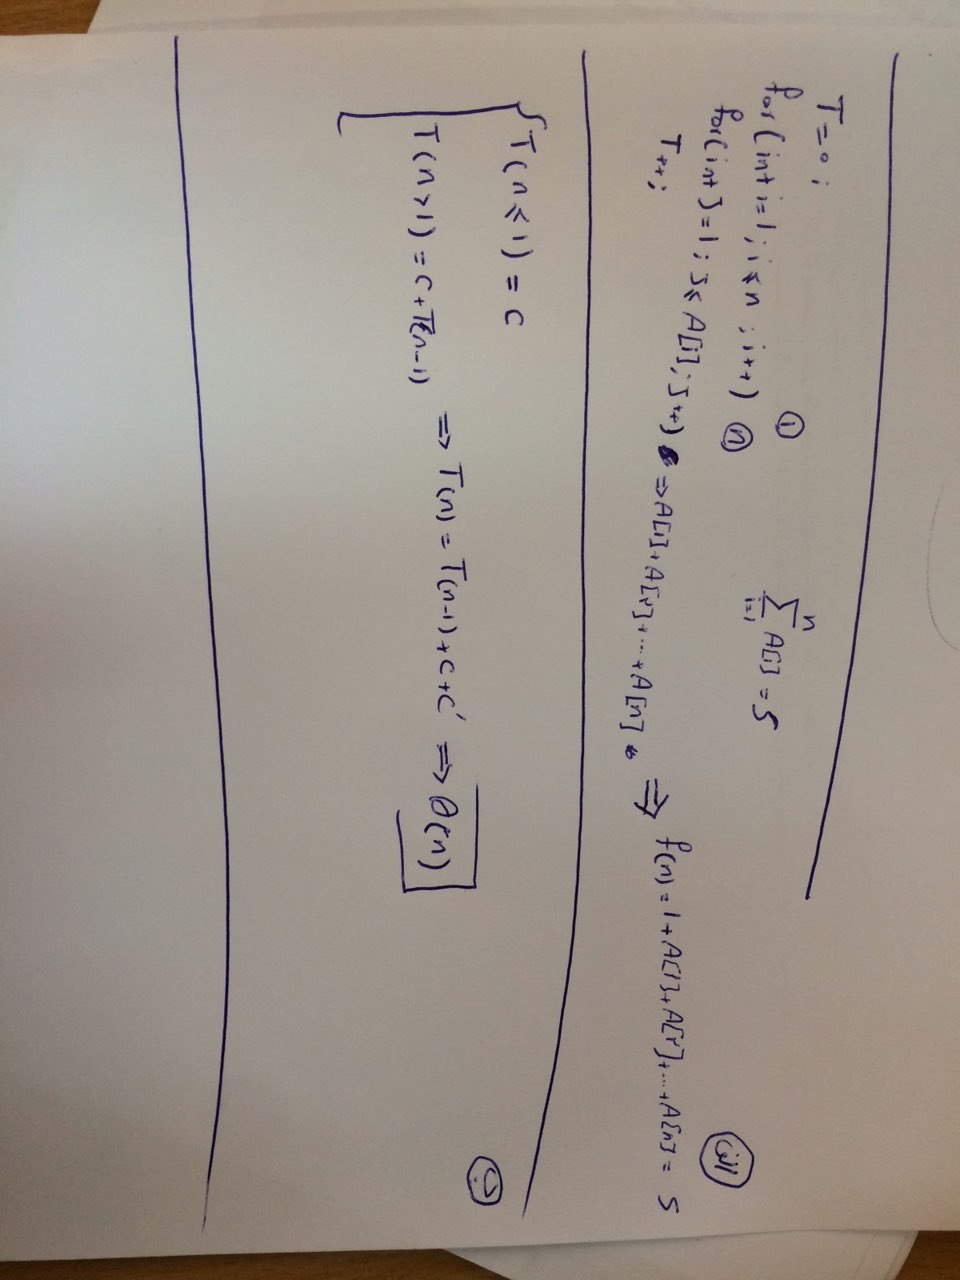 T=0;
for(int i=1; i≤n; i++) ①
for(int J=1; J≤A[i]; J++) ⓝ
T++; ⇒ A[1]+A[۲]+...+A[n] ⇒ f(n) = 1+A[1]+A[۲]+...+A[n] = S
n
∑ A[i] = S
i=1
الف
{ T(n≤1) = C
T(n>1) = C+T(n-1) ⇒ T(n) = T(n-1)+C+C' ⇒ θ(n)
ب